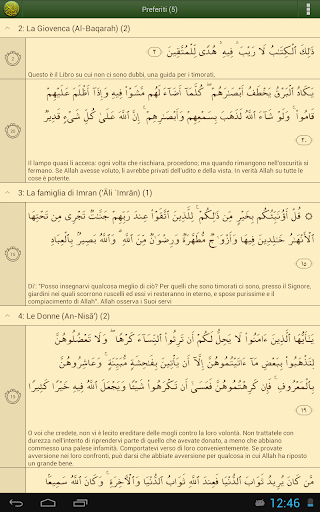 Preferiti (5)
2: La Giovenca (Al-Baqarah) (2)
ذَٰلِكَ ٱلْكِتَـٰبُ لَا رَيْبَ ۛ فِيهِ ۛ هُدًى لِّلْمُتَّقِينَ ٢
2
Questo è il Libro su cui non ci sono dubbi, una guida per i timorati.
يَكَادُ ٱلْبَرْقُ يَخْطَفُ أَبْصَـٰرَهُمْ ۖ كُلَّمَآ أَضَآءَ لَهُم مَّشَوْا۟ فِيهِ وَإِذَآ أَظْلَمَ عَلَيْهِمْ
قَامُوا۟ ۚ وَلَوْ شَآءَ ٱللَّهُ لَذَهَبَ بِسَمْعِهِمْ وَأَبْصَـٰرِهِمْ ۚ إِنَّ ٱللَّهَ عَلَىٰ كُلِّ شَىْءٍ قَدِيرٌ
20
٢٠
Il lampo quasi li acceca: ogni volta che rischiara, procedono; ma quando rimangono nell'oscurità si
fermano. Se Allah avesse voluto, li avrebbe privati dell'udito e della vista. In verità Allah su tutte le
cose è potente.
3: La famiglia di Imran ('Âli `Imrân) (1)
۞ قُلْ أَؤُنَبِّئُكُم بِخَيْرٍ مِّن ذَٰلِكُمْ ۚ لِلَّذِينَ ٱتَّقَوْا۟ عِندَ رَبِّهِمْ جَنَّـٰتٌ تَجْرِى مِن تَحْتِهَا
ٱلْأَنْهَـٰرُ خَـٰلِدِينَ فِيهَا وَأَزْوَٰجٌ مُّطَهَّرَةٌ وَرِضْوَٰنٌ مِّنَ ٱللَّهِ ۗ وَٱللَّهُ بَصِيرٌۢ بِٱلْعِبَادِ
15
١٥
Di': "Posso insegnarvi qualcosa meglio di ciò? Per quelli che sono timorati ci sono, presso il Signore,
giardini nei quali scorrono ruscelli ed essi vi resteranno in eterno, e spose purissime e il
compiacimento di Allah". Allah osserva i Suoi servi
4: Le Donne (An-Nisâ') (2)
يَـٰٓأَيُّهَا ٱلَّذِينَ ءَامَنُوا۟ لَا يَحِلُّ لَكُمْ أَن تَرِثُوا۟ ٱلنِّسَآءَ كَرْهًا ۖ وَلَا تَعْضُلُوهُنَّ
لِتَذْهَبُوا۟ بِبَعْضِ مَآ ءَاتَيْتُمُوهُنَّ إِلَّآ أَن يَأْتِينَ بِفَـٰحِشَةٍ مُّبَيِّنَةٍ ۚ وَعَاشِرُوهُنَّ
بِٱلْمَعْرُوفِ ۚ فَإِن كَرِهْتُمُوهُنَّ فَعَسَىٰٓ أَن تَكْرَهُوا۟ شَيْـًٔا وَيَجْعَلَ ٱللَّهُ فِيهِ خَيْرًا كَثِيرًا
19
١٩
O voi che credete, non vi è lecito ereditare delle mogli contro la loro volontà. Non trattatele con
durezza nell'intento di riprendervi parte di quello che avevate donato, a meno che abbiano
commesso una palese infamità. Comportatevi verso di loro convenientemente. Se provate
avversione nei loro confronti, può darsi che abbiate avversione per qualcosa in cui Allah ha riposto
un grande bene.
مَّن كَانَ يُرِيدُ ثَوَابَ ٱلدُّنْيَا فَعِندَ ٱللَّهِ ثَوَابُ ٱلدُّنْيَا وَٱلْـَٔاخِرَةِ ۚ وَكَانَ ٱللَّهُ سَمِيعًۢا
12:46